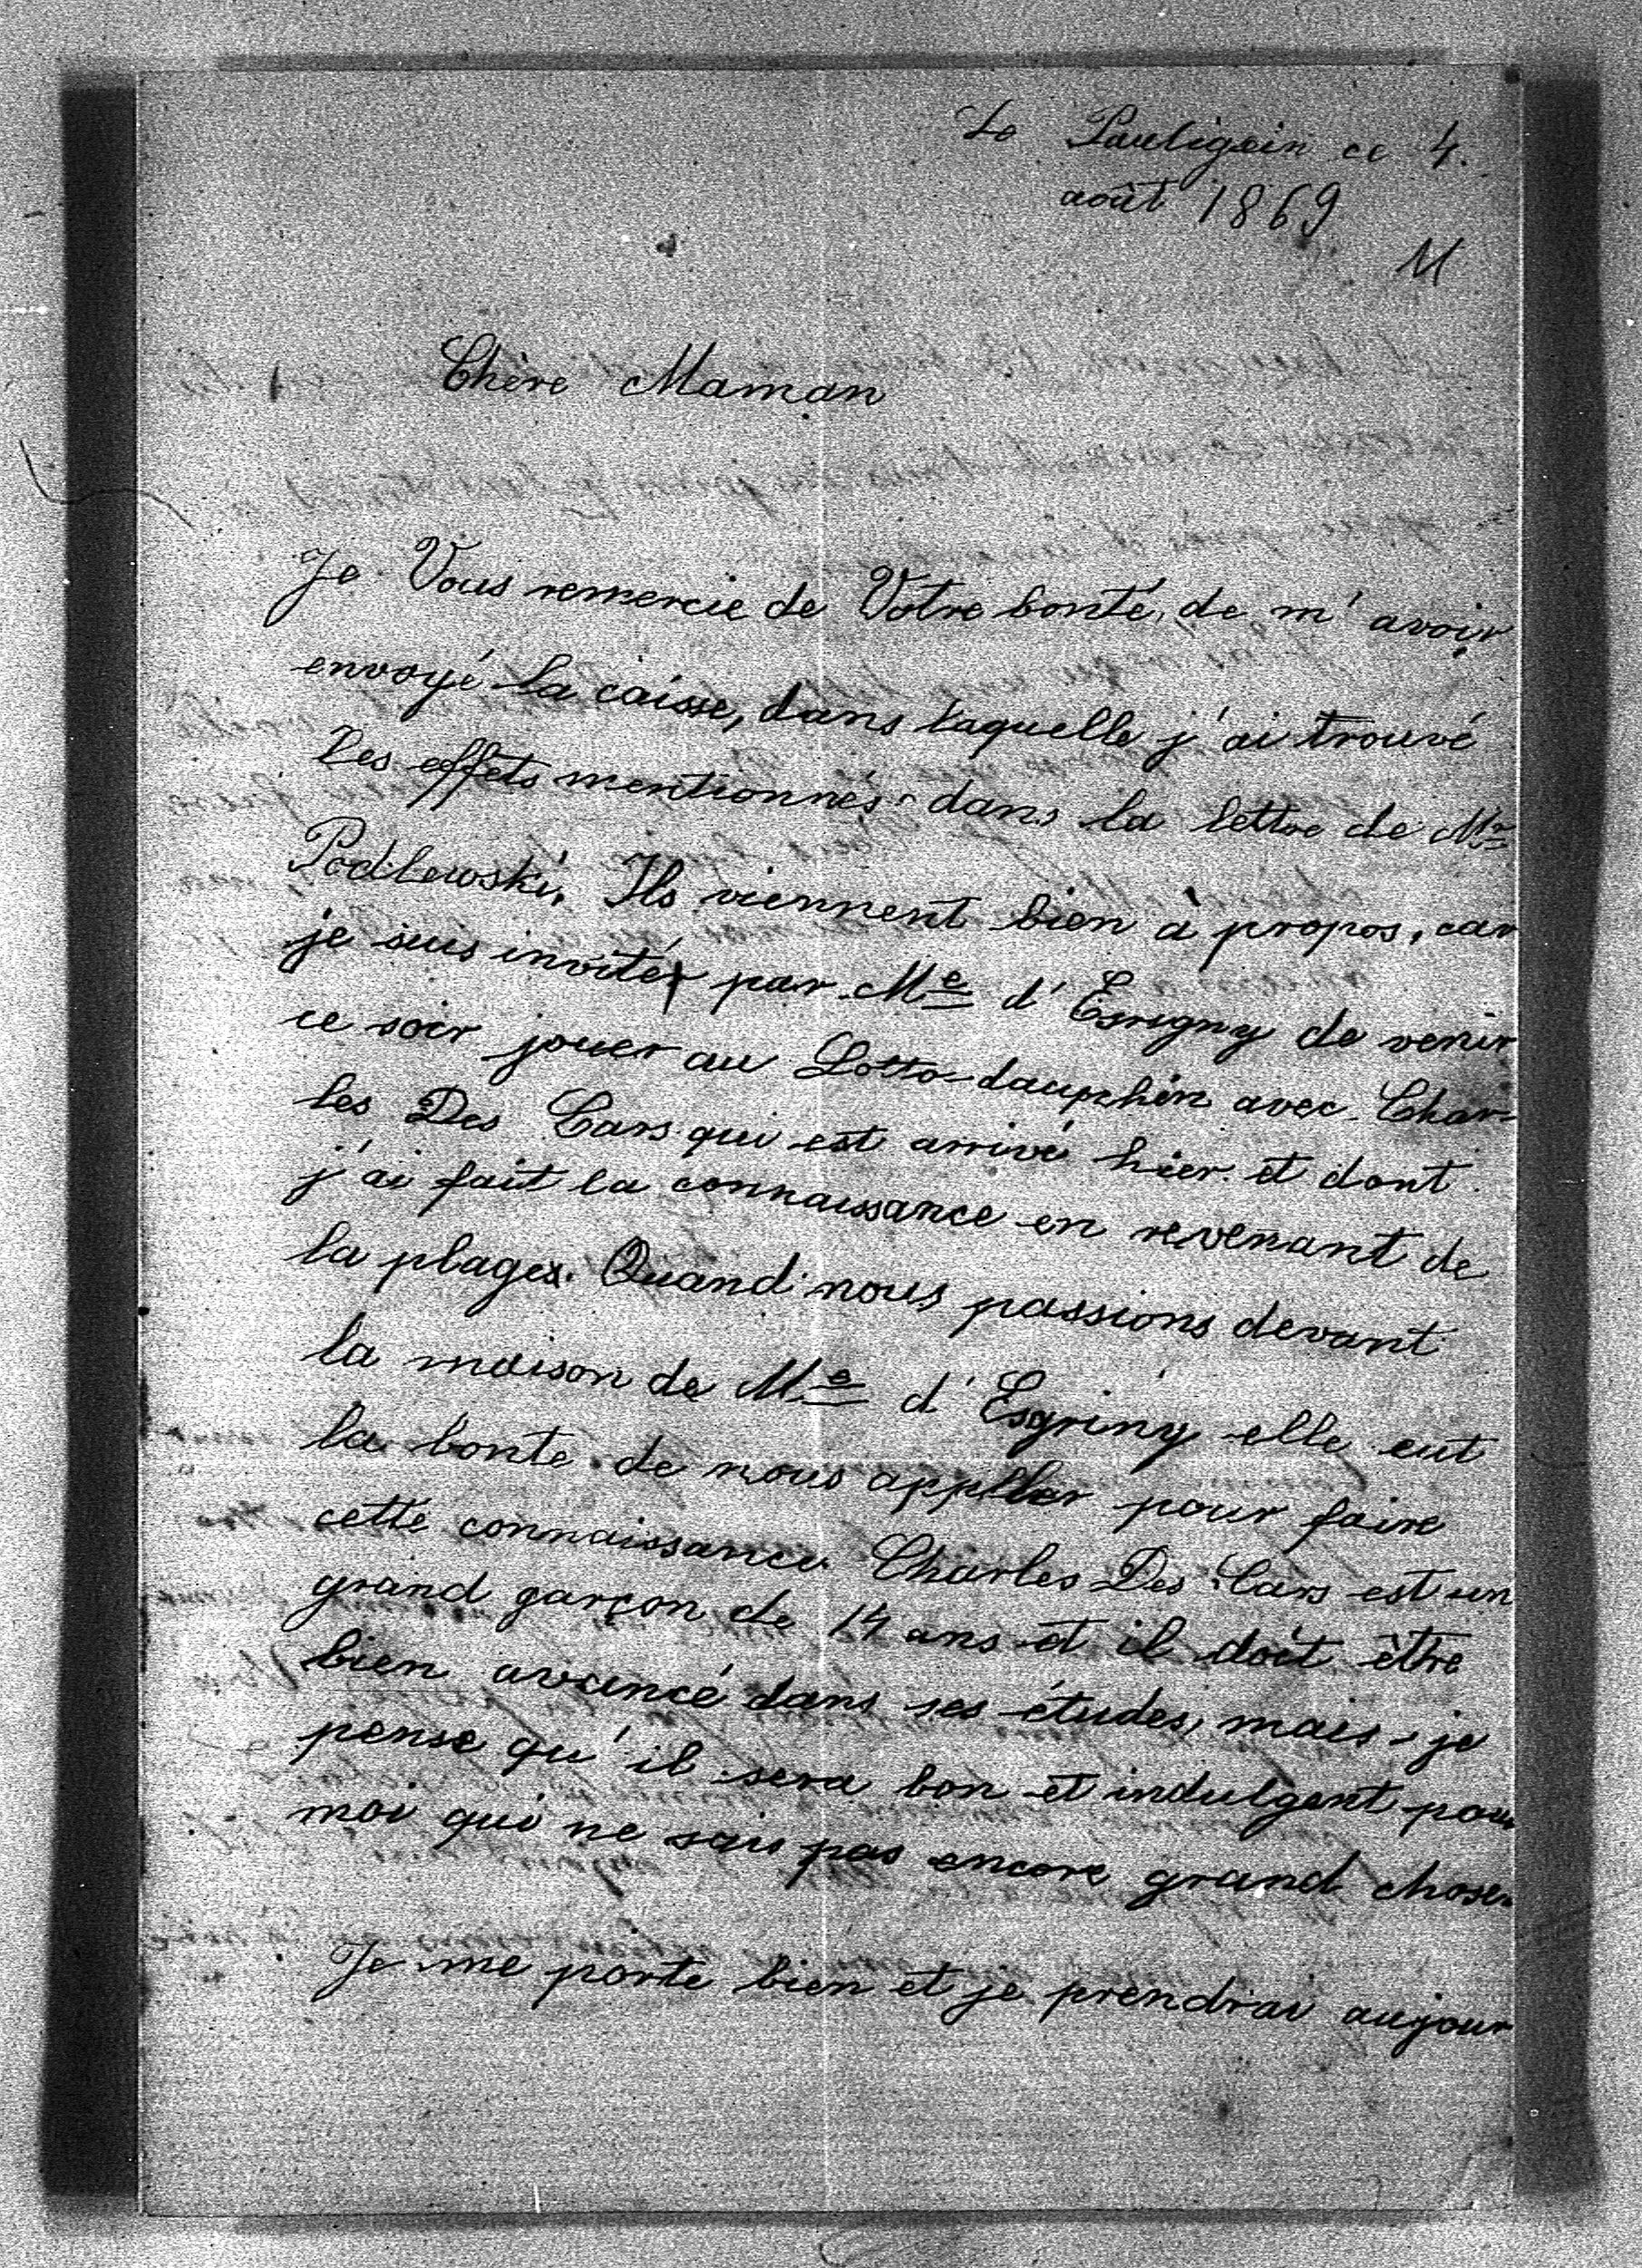 Le Pauligain ce 4.
août 1869
M
Chère Maman
Je Vous remercie de Votre bonté, de m'avoir
envoyé la caisse, dans laquelle j'ai trouvé
les effets mentionnés dans la lettre de Mr
Podlewski. Ils viennent bien à propos, car
je suis invité par Me d'Esrigny de venir
ce soir jouer au Lotto-dauphin avec Char-
les Des Cars qui est arrivé hier et dont
j'ai fait la connaissance en revenant de
la plage. Quand nous passions devant
la maison de Me d'Esgriny elle eut
la bonte de nous appeller pour faire
cette connaissance. Charles Des Cars est un
grand garçon de 14 ans et il doit être
bien avancé dans ses études, mais je
pense qu'il sera bon et indulgent pour
moi qui ne sais pas encore grand chose.
Je me porte bien et je prendrai aujour